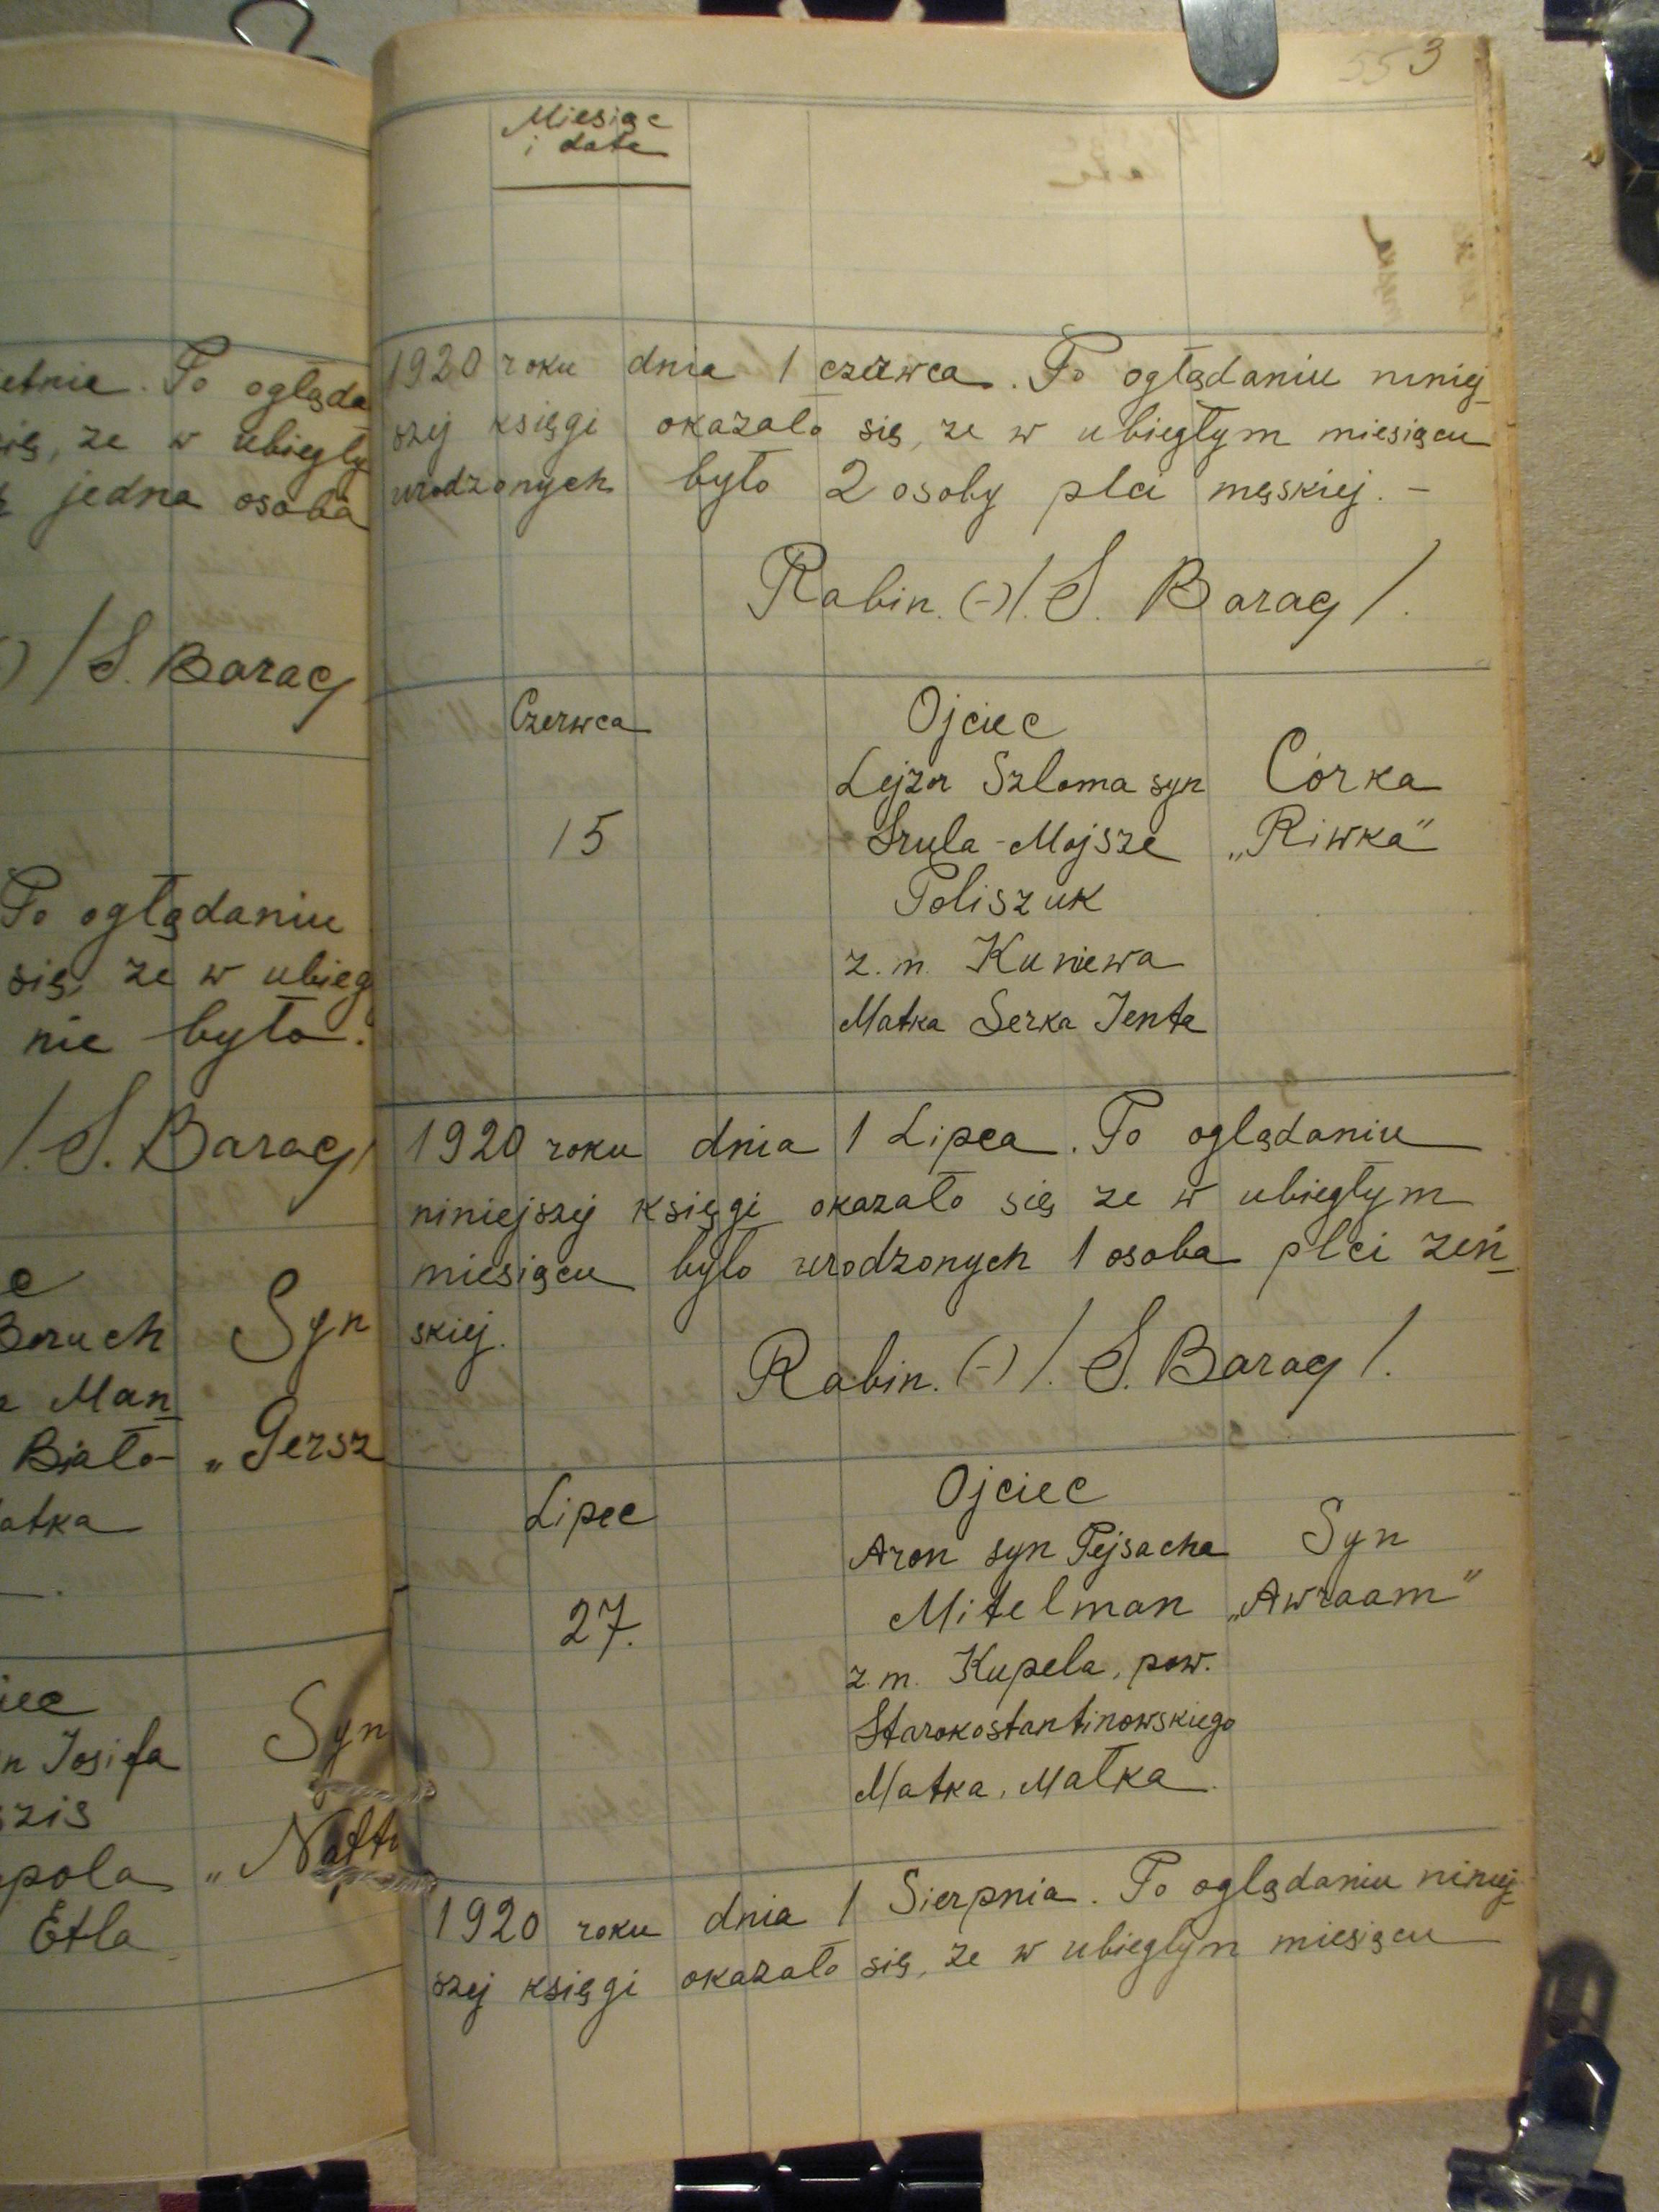 etnia. Po ogląda
się, ze w ubiegły
jedna osoba
(-) /S. Barag
Po oglądaniu
się, ze w ubieg
nie było.
/. S. Barag/
Boruch Syn
Man
Biało- „Gersz
atka
Josifa Syn
szis
pola „Natt
Etla
553
Miesiąc
i data
1920 roku dnia 1 czerwca. Po oglądaniu niniej
szej księgi okazało się, ze w ubiegłym miesiącu
urodzonych było 2 osoby plci męskiej. -
Rabin. (-) /. S. Barag /.
Czerwca
15
Ojciec
Lejzor Szloma syn
Srula-Mojsze
Poliszuk
z. m. Kuniewa
Matka Serka Jenta
Córka
„Riwka"
1920 roku dnia 1 Lipca. Po oglądaniu
niniejszej księgi okazało się ze w ubiegłym
miesiącu było urodzonych 1 osoba plci zeń
skiej.
Rabin. (-) /. S. Barag /.
Lipec
27.
Ojciec
Aron syn Pejsacha
Mitelman
z. m. Kupela, pow.
Starokostantinowskiego
Matka, Małka.
Syn
„Awraam"
1920 roku dnia 1 Sierpnia. Po oglądaniu niniej
szej księgi okazało się, ze w ubiegłym miesiącu